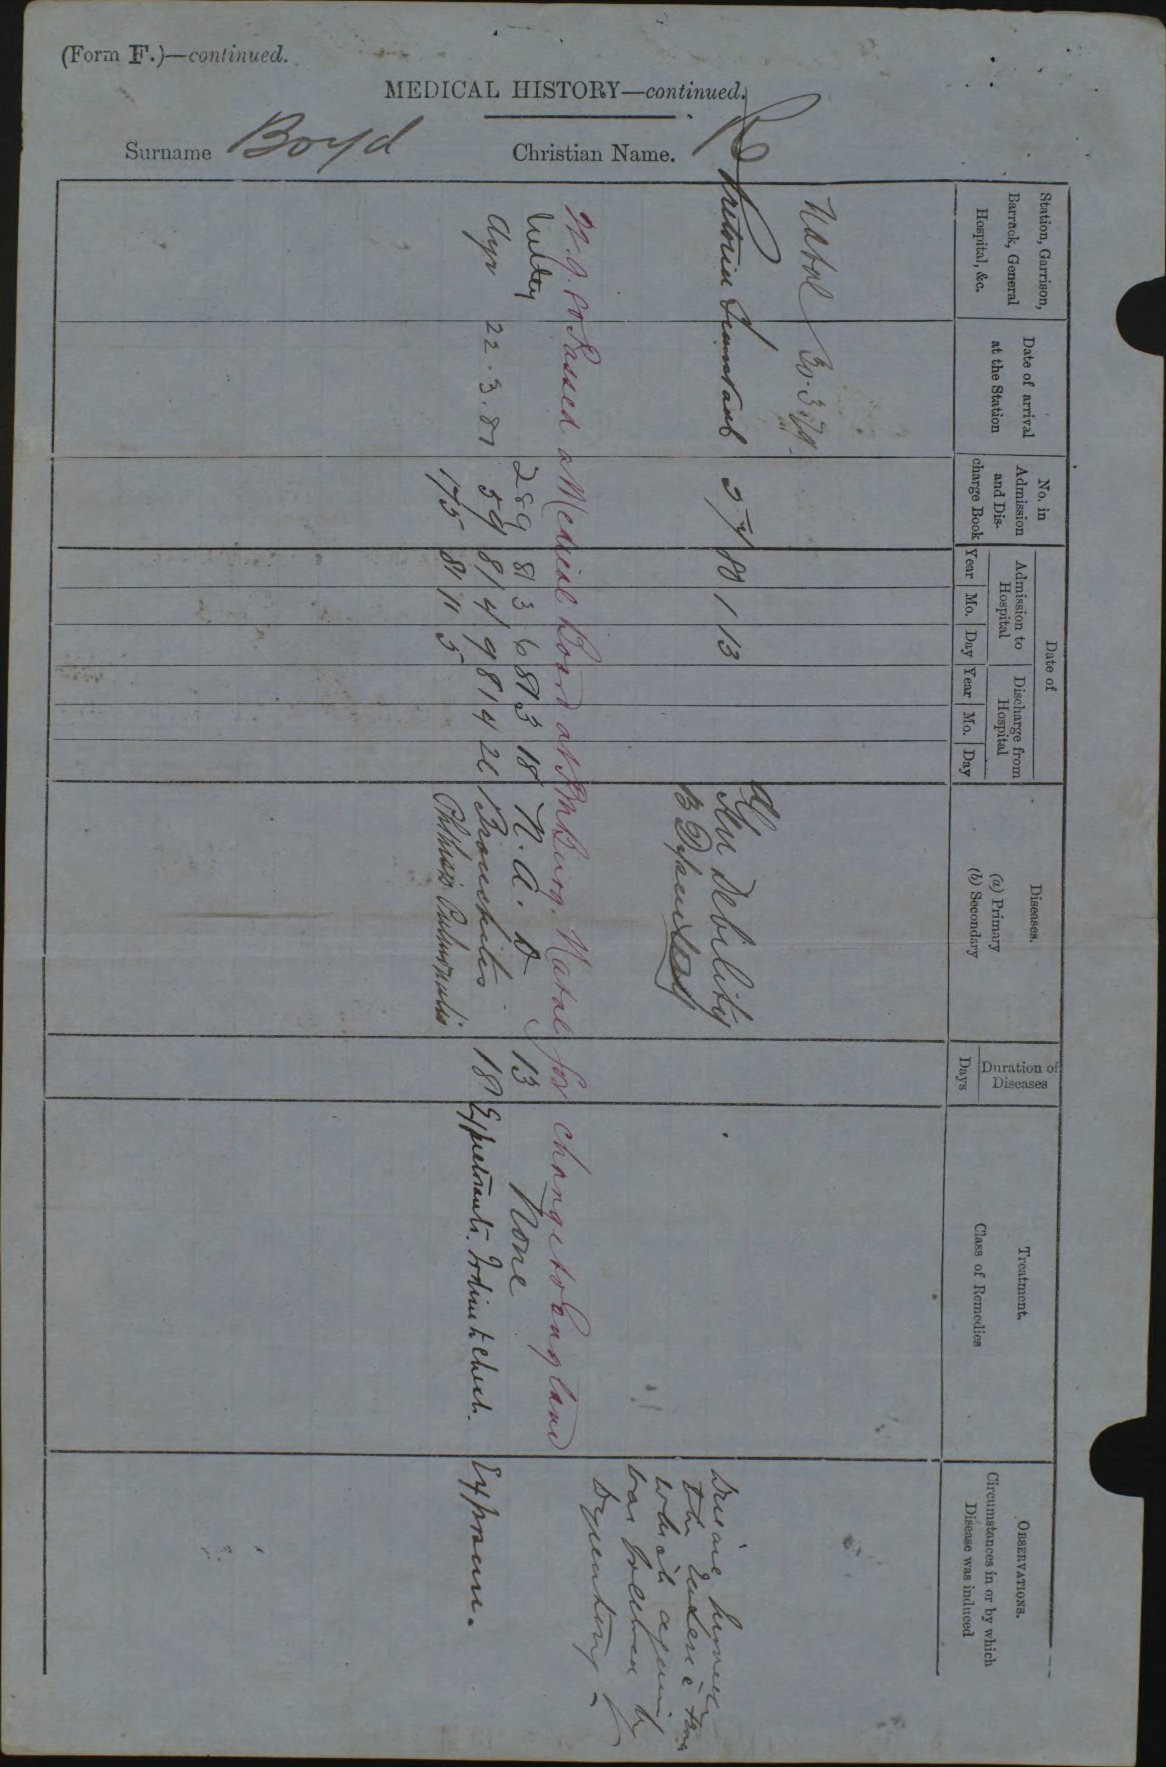 (Form F.)—continued.
MEDICAL HISTORY—continued.
Surname Boyd Christian Name. R
Station, Garrison, Barrack, General Hospital, &c.
Date of arrival at the Station
No. in Admission and Discharge Book
Date of
Admission to Hospital
Year Mo. Day
Discharge from Hospital
Year Mo. Day
Diseases.
(a) Primary
(b) Secondary
Duration of Diseases
Days
Treatment.
Class of Remedies
OBSERVATIONS.
Circumstances in or by which Disease was induced
Natal 30.3.79.
Pretoria Transvaal 80 1 13
Debility
B
which again
was by
Dysentery
Passed a Medical Board at PMBurg. Natal for change to England
289 81 3 6 81 3 18 N.A.D 13 None
Ayr 22.3.81 59 81 4 9 81 4 26 Bronchitis 18 Iodine to chest. Exposure.
175 81 11 5 Phthisis Pulmonalis